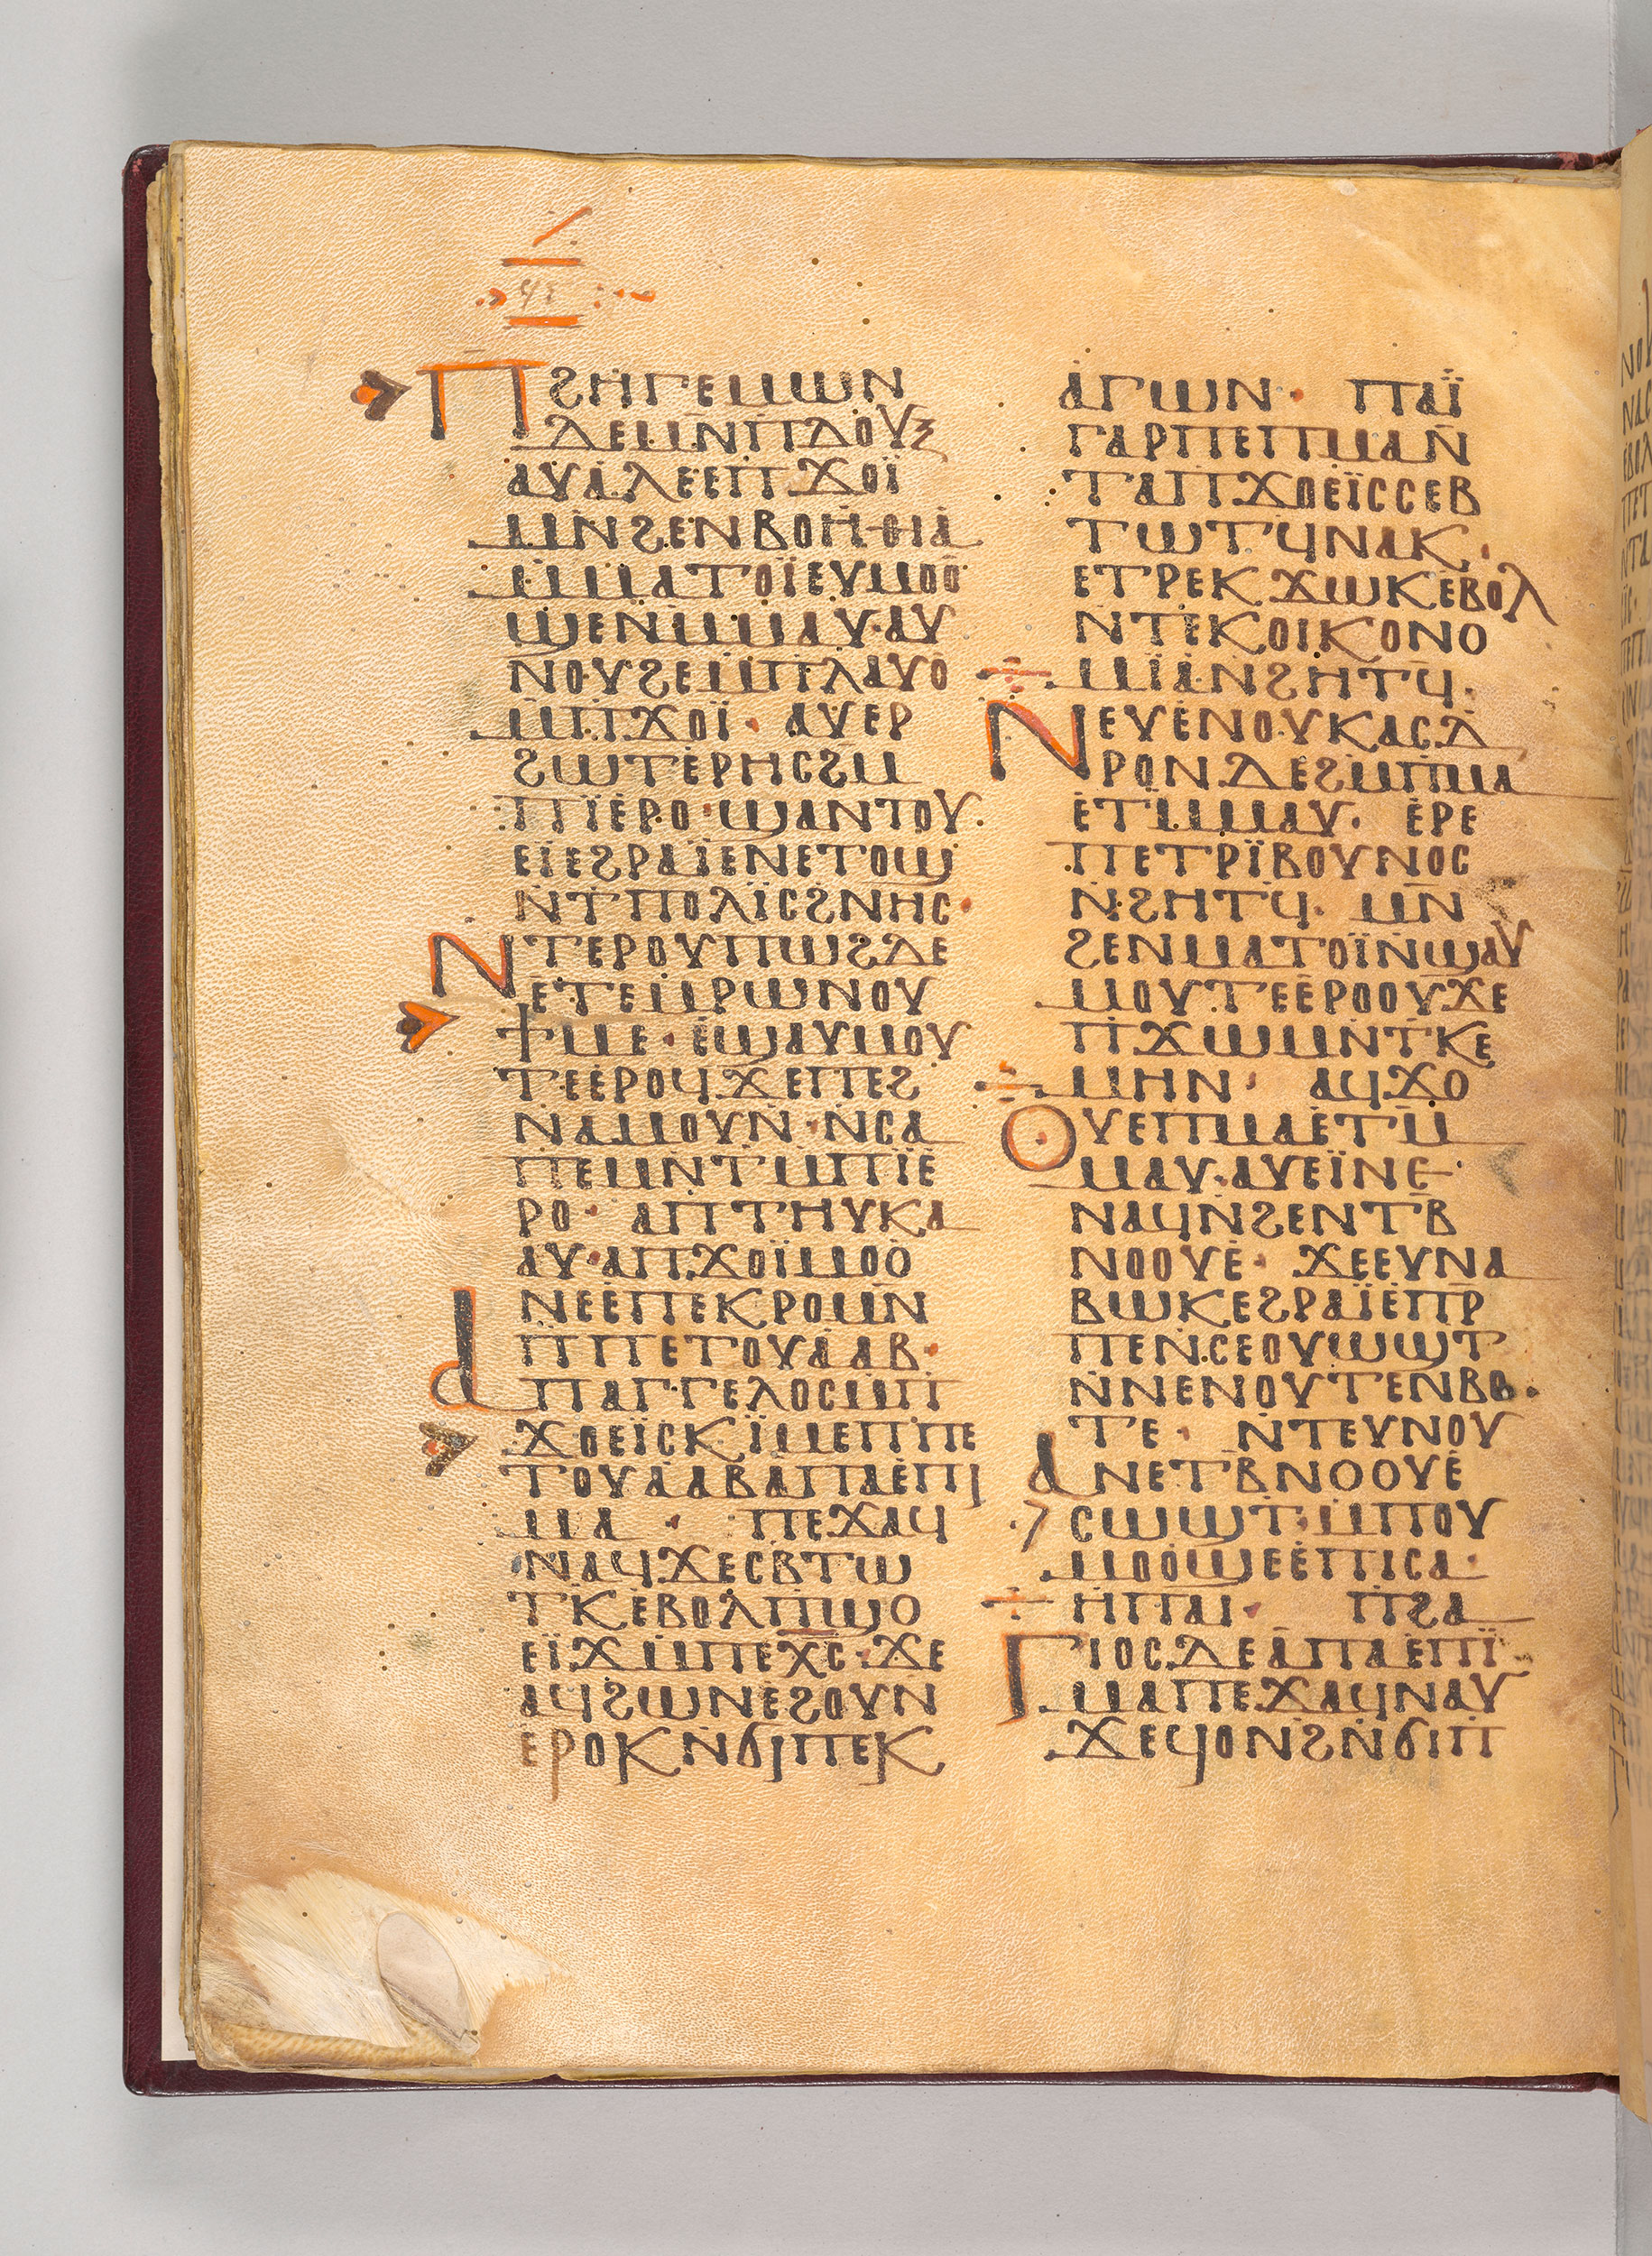 ⲠϨⲎⲄⲈⲘⲰⲚ
ⲆⲈⲘⲚ̄ⲠⲆⲞⲨⲜ
ⲀⲨⲀⲖⲈⲈⲠϪⲞⲒ̈
ⲘⲚ̄ϨⲈⲚⲂⲞⲎⲐⲒⲀ
ⲘⲘⲀⲦⲞⲒ̈ⲈⲨⲘⲞⲞ
ϢⲈⲚⲘⲘⲀⲨ·ⲀⲨ
ⲚⲞⲨϨⲈⲘⲠⲖⲀⲨⲞ
ⲘⲠϪⲞⲒ̈· ⲀⲨⲈⲢ
ϨⲰⲦⲈⲢⲎⲤϨⲘ
ⲠⲒ̈ⲈⲢⲞ·ϢⲀⲚⲦⲞⲨ
ⲈⲒⲈϨⲢⲀⲒ̈ⲈⲚⲈⲦⲞϢ
Ⲛ̄ⲦⲠⲞⲖⲒ̈ⲤϨⲚⲎⲤ·
ⲚⲦⲈⲢⲞⲨⲠⲰϨⲆⲈ
ⲈⲦⲈⲘⲢⲰⲚⲞⲨ
ϮⲘⲈ·ⲈϢⲀⲨⲘⲞⲨ
ⲦⲈⲈⲢⲞϤϪⲈⲠⲈϨ
ⲚⲀⲘⲞⲨⲚ·Ⲛ̄ⲤⲀ
ⲠⲈⲘⲚ̄ⲦⲘⲠⲒ̈Ⲉ
ⲢⲞ· ⲀⲠⲦⲎⲨⲔⲀ
ⲀⲨ·ⲀⲠϪⲞⲒ̈ⲘⲞⲞ
ⲚⲈⲈⲠⲈⲔⲢⲞⲘⲚ̄
ⲠⲠⲈⲦⲞⲨⲀⲀⲂ·
ⲀⲠⲀⲄⲄⲈⲖⲞⲤⲘⲠ
ϪⲞⲈⲒ̈ⲤⲔⲒ̈ⲘⲈⲠⲠⲈ
ⲦⲞⲨⲀⲀⲂⲀⲠⲀⲈⲠⲒ
ⲘⲀ · ⲠⲈϪⲀϤ
ⲚⲀϤϪⲈⲤⲂⲦⲰ
ⲦⲔⲈⲂⲞⲖⲠϢⲞ
ⲈⲒ̈ϪⲘⲠⲈⲬ̅Ⲥ̅·ϪⲈ
ⲀϤϨⲰⲚⲈϨⲞⲨⲚ
ⲈⲢⲞⲔⲚ̄ϬⲒⲠⲈⲔ
ⲀⲄⲰⲚ· ⲠⲀⲒ̈
ⲄⲀⲢⲠⲈⲠⲘⲀⲚ̄
ⲦⲀⲠϪⲞⲈⲒ̈ⲤⲤⲈⲂ
ⲦⲰⲦϤⲚⲀⲔ·
ⲈⲦⲢⲈⲔϪⲰⲔⲈⲂⲞⲖ
Ⲛ̄ⲦⲈⲔⲞⲒⲔⲞⲚⲞ
ⲘⲒ̈ⲀⲚ̄ϨⲎⲦϤ̄·
ⲚⲈⲨⲈⲚⲞⲨⲔⲀⲤⲆ
ⲢⲞⲚⲆⲈϨⲘⲠⲘⲀ
ⲈⲦⲘⲘⲀⲨ· ⲈⲢⲈ
ⲠⲈⲦⲢⲒ̈ⲂⲞⲨⲚⲞⲤ
Ⲛ̄ϨⲎⲦϤ̄· ⲘⲚ̄
ϨⲈⲚⲘⲀⲦⲞⲒ̈Ⲛ̄ϢⲀⲨ
ⲘⲞⲨⲦⲈⲈⲢⲞⲞⲨϪⲈ
ⲠϪⲰⲘⲚ̄ⲦⲔⲈ
ⲘⲎⲚ· ⲀϤϪⲞ
ⲞⲨⲈⲠⲘⲀⲈⲦⲘ̄
ⲘⲀⲨ·ⲀⲨⲈⲒ̈ⲚⲈ·
ⲚⲀϤⲚ̄ϨⲈⲚⲦⲂ̄
ⲚⲞⲞⲨⲈ· ϪⲈⲈⲨⲚⲀ
ⲂⲰⲔⲈϨⲢⲀⲒ̈ⲈⲠⲢ̄
ⲠⲈⲚ̄ⲤⲈⲞⲨⲰϢⲦ
Ⲛ̄ⲚⲈⲚⲞⲨⲦⲈⲚⲂⲞ·
ⲦⲈ· Ⲛ̄ⲦⲈⲨⲚⲞⲨ
ⲀⲚⲈⲦⲂ̄ⲚⲞⲞⲨⲈ
ⲤⲰϢⲦ·ⲘⲠⲞⲨ
ⲘⲞⲞϢⲈⲈⲠⲒⲤⲀ·
ⲎⲠⲀⲒ· ⲠϨⲀ
ⲄⲒⲞⲤⲆⲈⲀⲠⲀⲈⲠⲒ̈
ⲘⲀⲠⲈϪⲀϤⲚⲀⲨ
ϪⲈϤⲞⲚϨⲚ̄ϬⲒⲠ